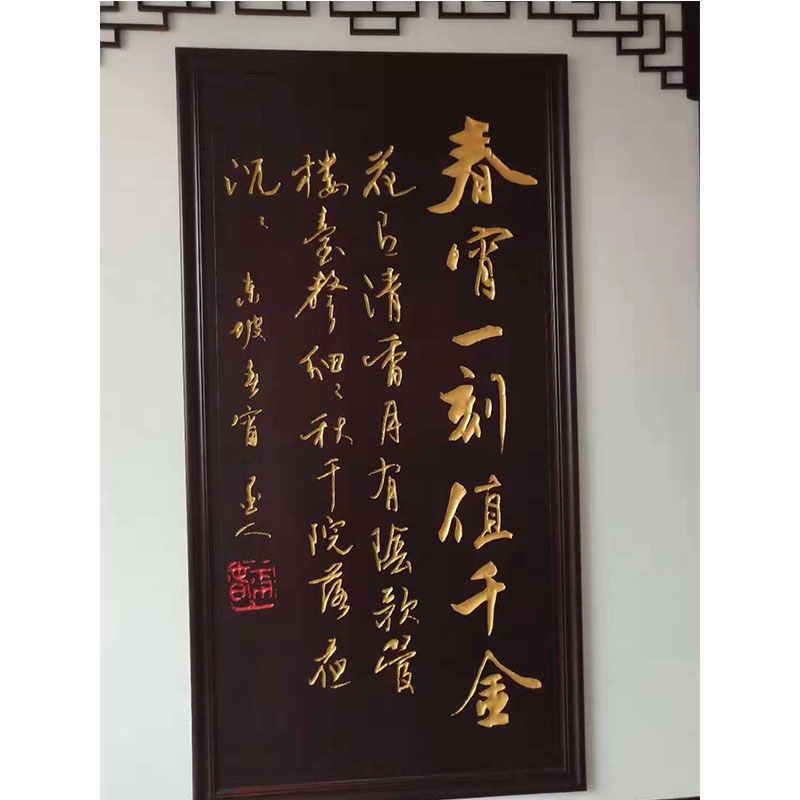 春宵一刻值千金
花有清香月有陰歌管
樓臺聲細〻秋千院落夜
沉〻 東坡春宵